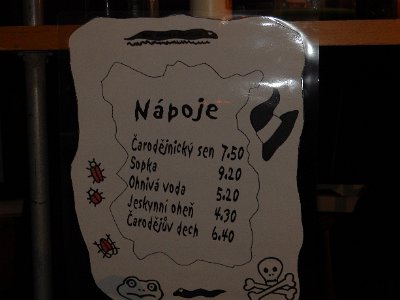 Nápoje
Čarodějnický sen 7.50
Sopka 9.20
Ohnivá voda 5.20
Jeskynní oheň 4.30
Čarodějův dech 6.40